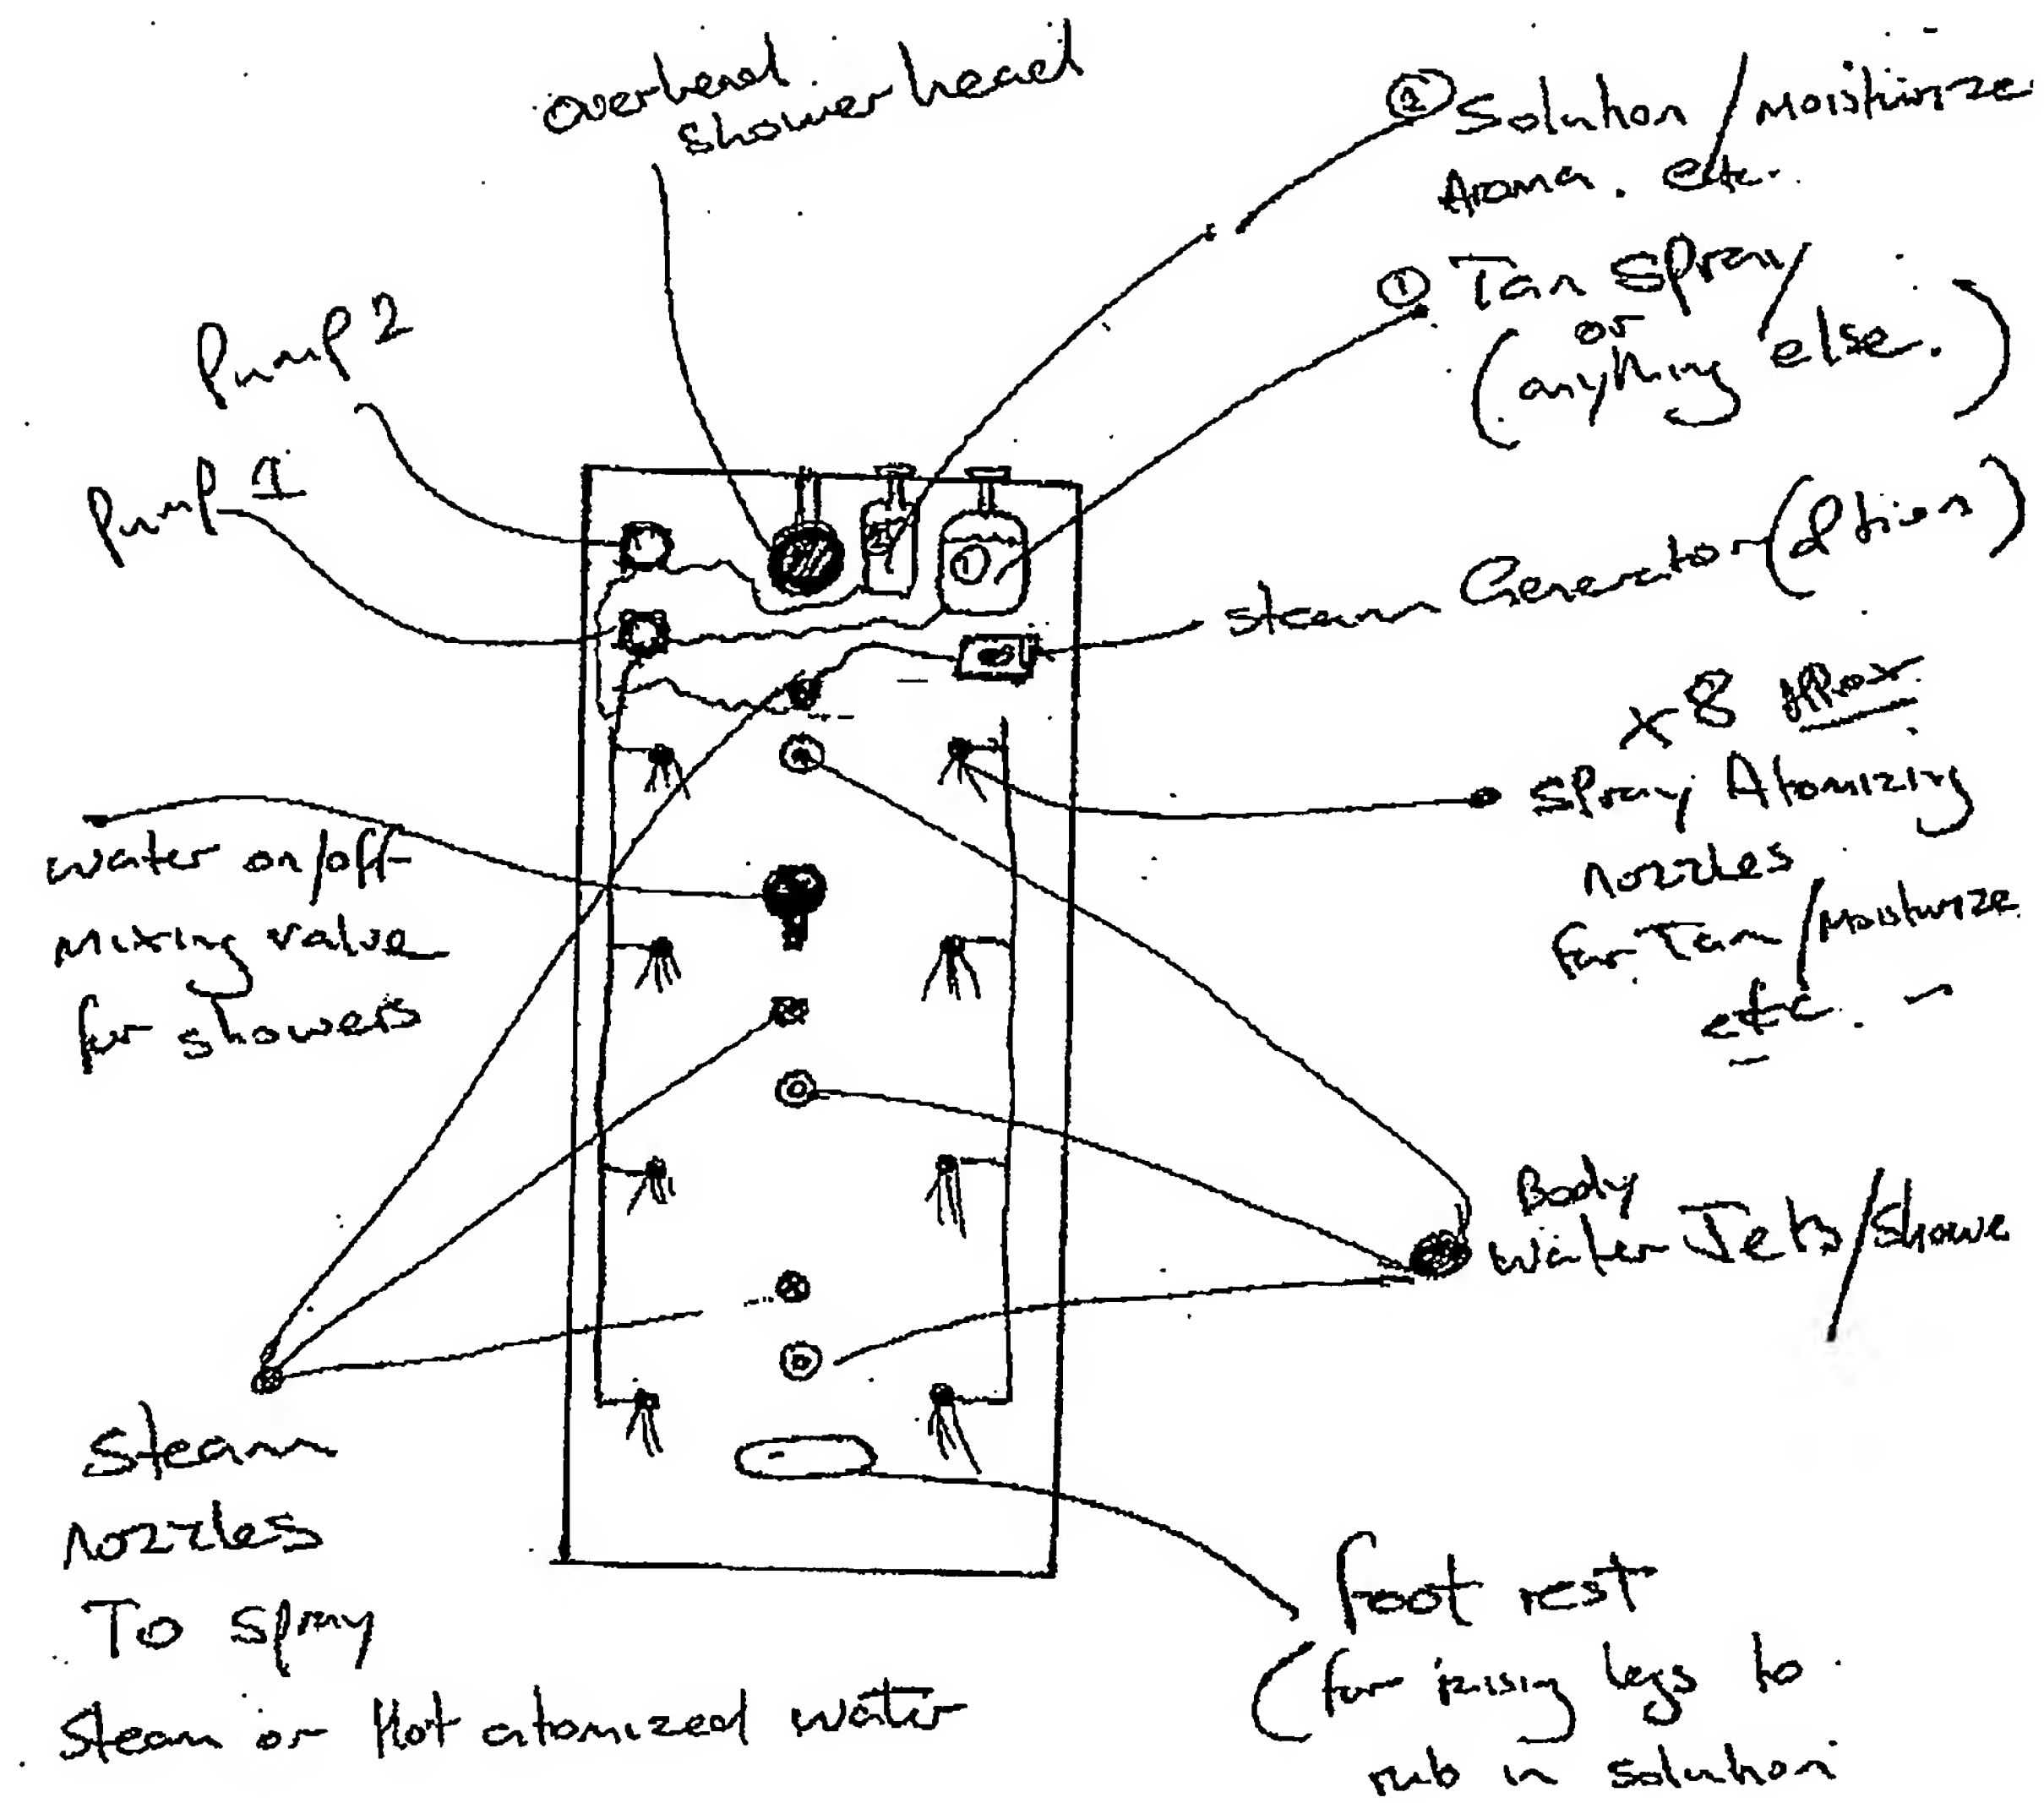 Overhead
shower head
② Solution / Moisturize
Aroma. etc.
① Tan Spray /
or
(anything else.)
Pump 2
Pump 1
2
1
steam Generator (Option)
x8 APProx
Spray Atomizing
nozzles
for Tan / Moisturize
etc.
water on/off
mixing valve
for showers
Body
water Jets / Showe
Steam
nozzles
To spray
Steam or Hot atomized water
foot rest
(for rising legs to
rub in solution